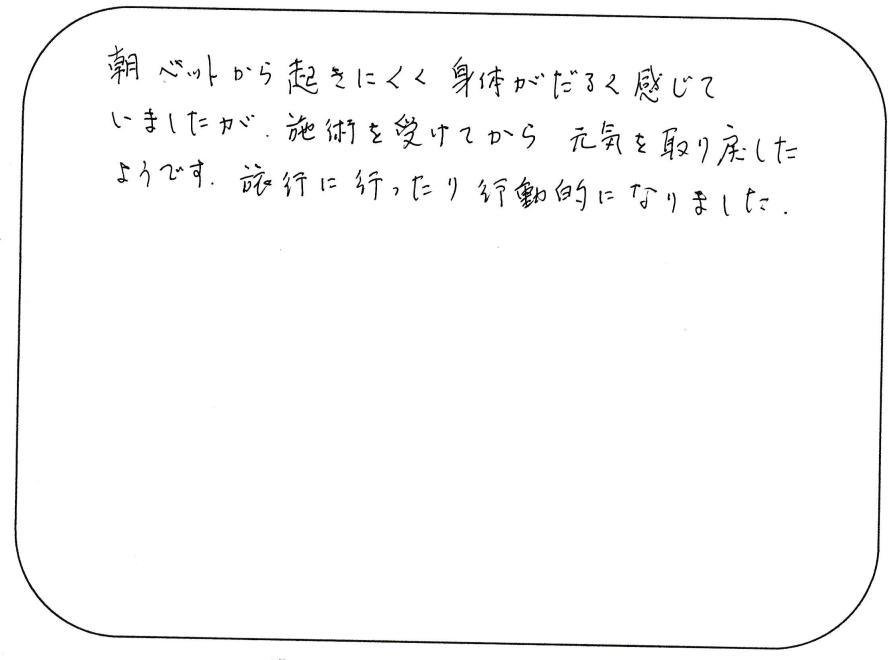 朝 ベットから起きにくく身体がだるく感じて
いましたが、施術を受けてから 元気を取り戻した
ようです。旅行に行ったり行動的になりました。